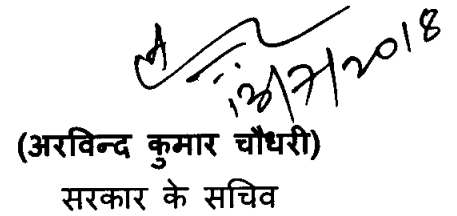 /7/2018
(अरविन्द कुमार चौधरी)
सरकार के सचिव